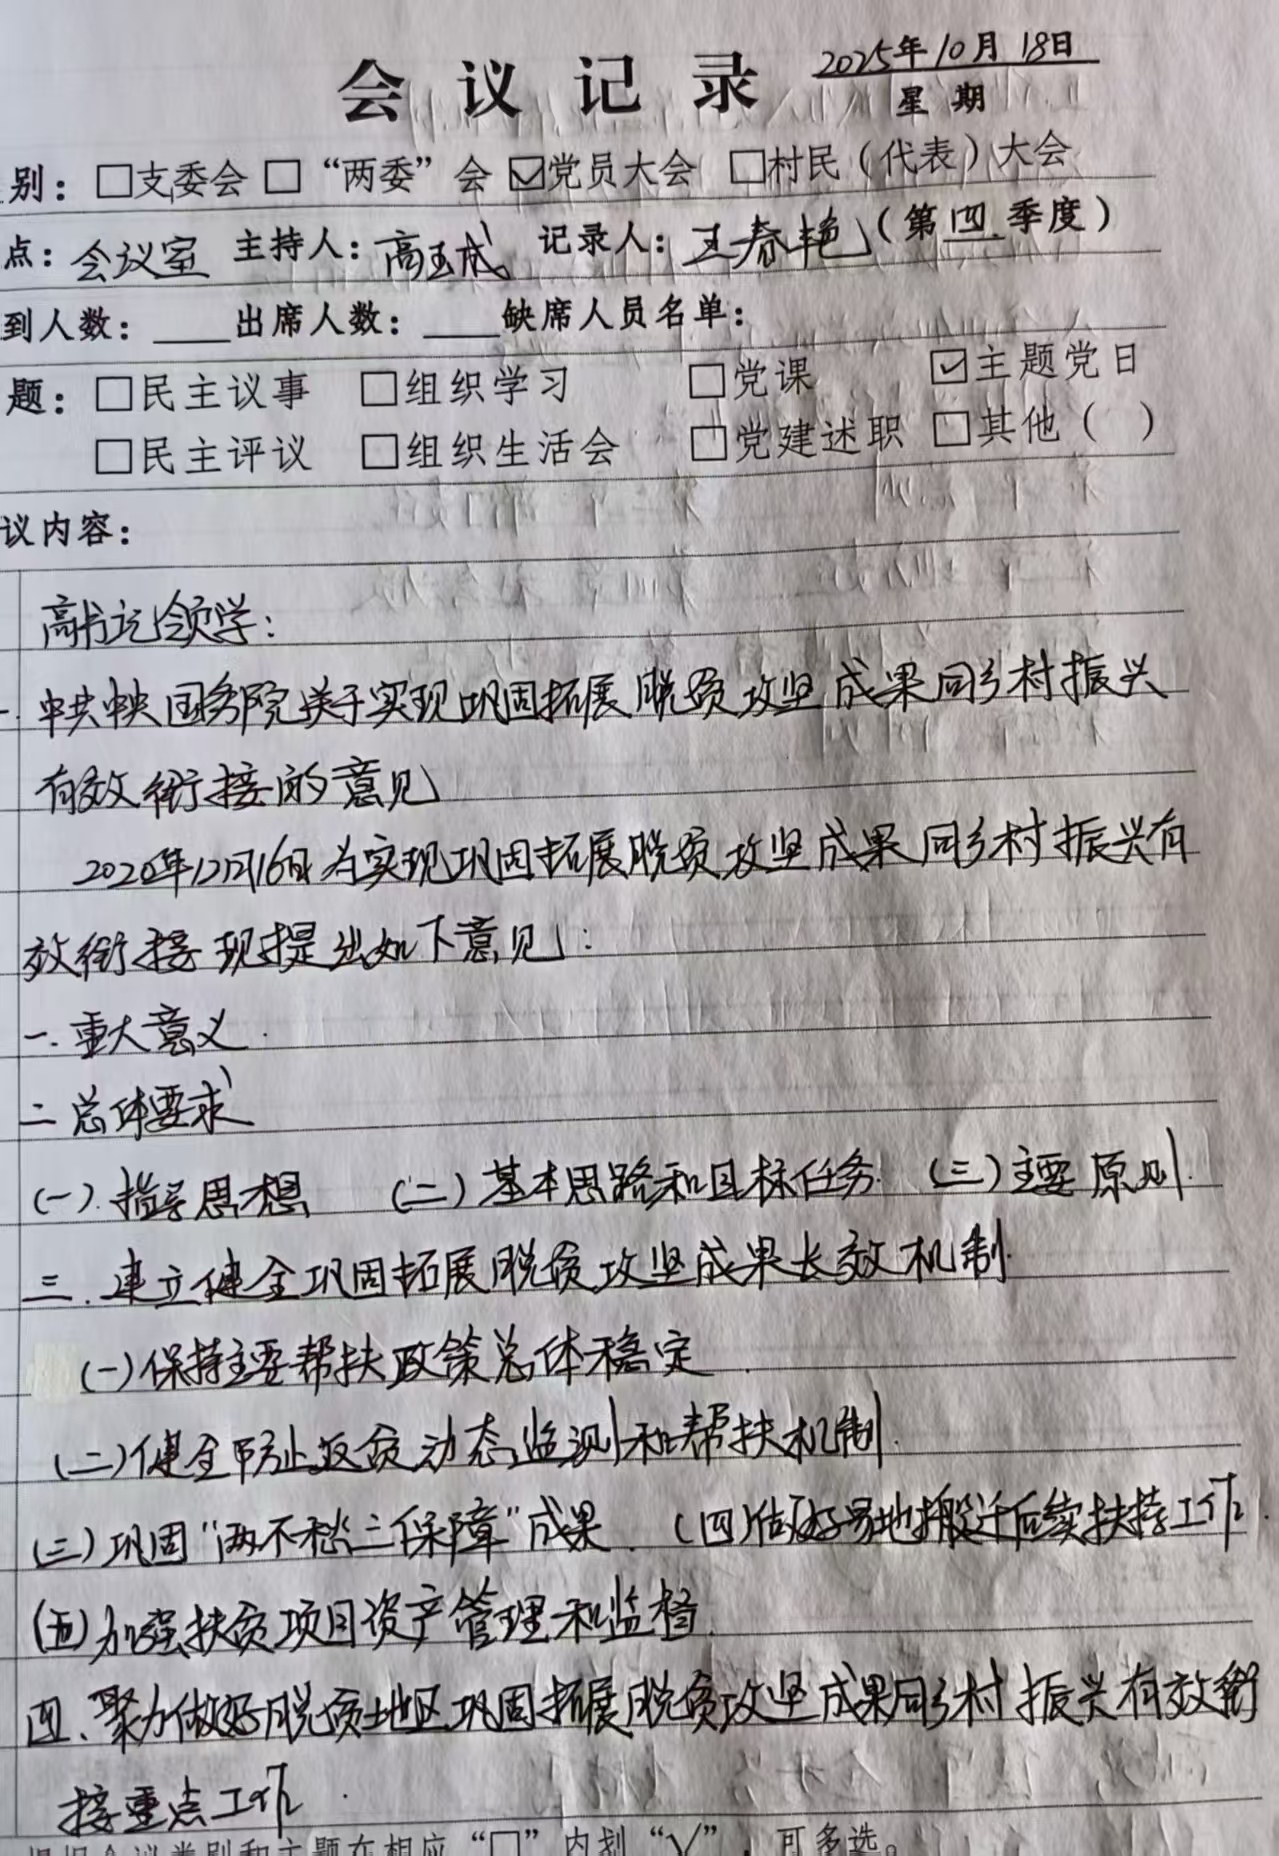 会议记录 2025年10月18日
星期
别：□支委会 □“两委”会 ☑党员大会 □村民（代表）大会
点：会议室 主持人：高玉成 记录人：王春艳（第四季度）
到人数：____出席人数：____缺席人员名单：
题：□民主议事 □组织学习 □党课 ☑主题党日
□民主评议 □组织生活会 □党建述职 □其他（ ）
议内容：
高书记领学：
一.中共中央国务院关于实现巩固拓展脱贫攻坚成果同乡村振兴
有效衔接的意见
2020年12月16日为实现巩固拓展脱贫攻坚成果同乡村振兴有
效衔接现提出如下意见：
一.重大意义.
二总体要求
(一).指导思想 (二)基本思路和目标任务. (三)主要原则.
三.建立健全巩固拓展脱贫攻坚成果长效机制.
(一)保持主要帮扶政策总体稳定.
(二)健全防止返贫动态监测和帮扶机制.
(三)巩固“两不愁三保障”成果. (四)做好易地搬迁后续扶持工作.
(五)加强扶贫项目资产管理和监督.
四.聚力做好脱贫地区巩固拓展脱贫攻坚成果同乡村振兴有效衔
接重点工作.
根据会议类别和主题在相应“□”内划“√”，可多选。